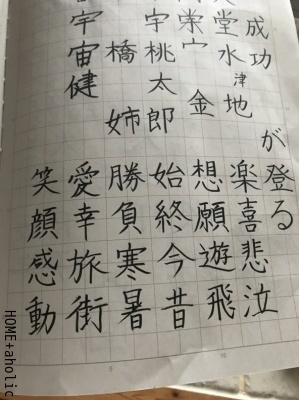 成功
が登る
堂水津地
楽喜悲泣
栄宀金
想願遊飛
宇桃太郎
始終今昔
橋姉
勝負寒暑
宇宙健
愛幸旅街
笑顔感動
HOME+aholic